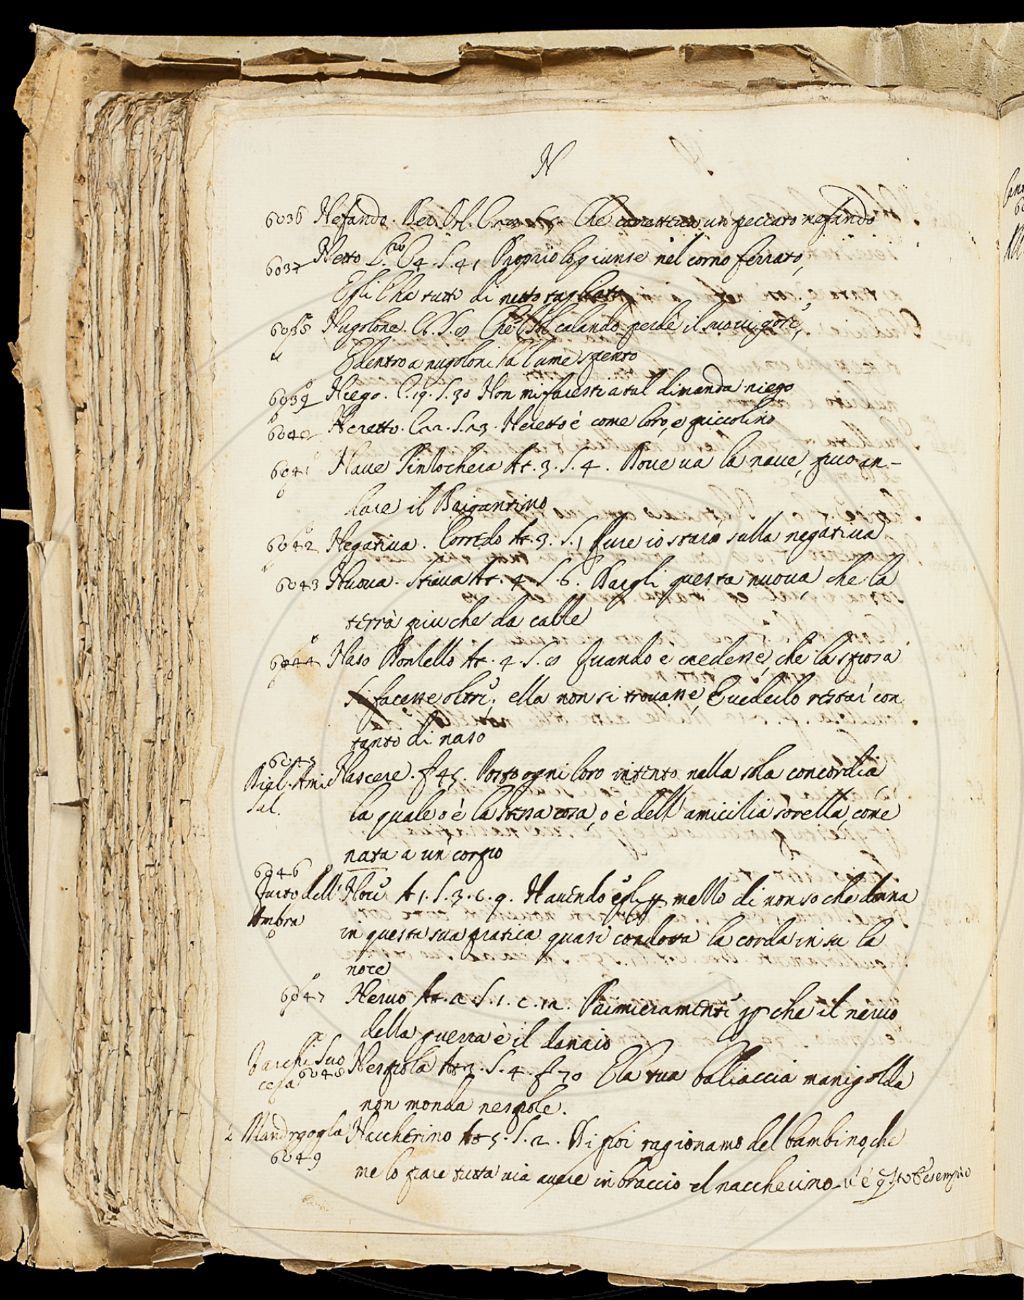 N
6036 Nefando. Ber. Orl. Che un peccato nefando
6037 Netto C. 4. S. 41 Proprio lo giunse nel corno ferrato,
Egli l'ha tutto di netto tagliato
Nugolone. C. 6. S. Che calando perdè il
E dentro a nugoloni sa lume spento
6039 Niego. C. 19. S. 30 Non mi faresti a tal dimanda niego
6040 Neretto. S. 23. Neretto è come loro, e piccolino
6041 Nave Pinzochera At. 3. S. 4. Dove va la nave, può an-
dare il Brigantino
6042 Negativa. Corredo At. 3. S. 1 Pure io starò sulla negativa
6043 Nuova. Stiava At. 4 S. 6. Dargli questa nuova, che la
terrà più che da calle
6044 Naso Donzello At. 4. S. Quando e credesse che la sposa
si facesse oltre, ella non si trovasse, E vederlo restar con
tanto di naso
6045
Nascere. f 45. Posto ogni loro intento nella sola concordia
Sal. la quale o è la stessa cosa, o è dell' amicizia sorella, come
nata a un corpo
6046
Furto dell' Noce At 1. S. 3. c. 9. Havendo egli p mezzo di non so che donna
Ambra in questa sua pratica quasi condotta la corda in su la
noce
6047 Nervo At. 2 S. 1. c. 12. Primieramente p che il nervo
della guerra è il danaio
Varchi Suo
cera 6048 Nespola At. 3. S. 4. f 70 E la tua baliaccia manigolda
non monda nespole.
Mandragola Naccherino At 5. S. 2. Di poi ragionamo del bambino, che
6049
me lo pare tutta via avere in braccio el naccherino v'è qsto esempio